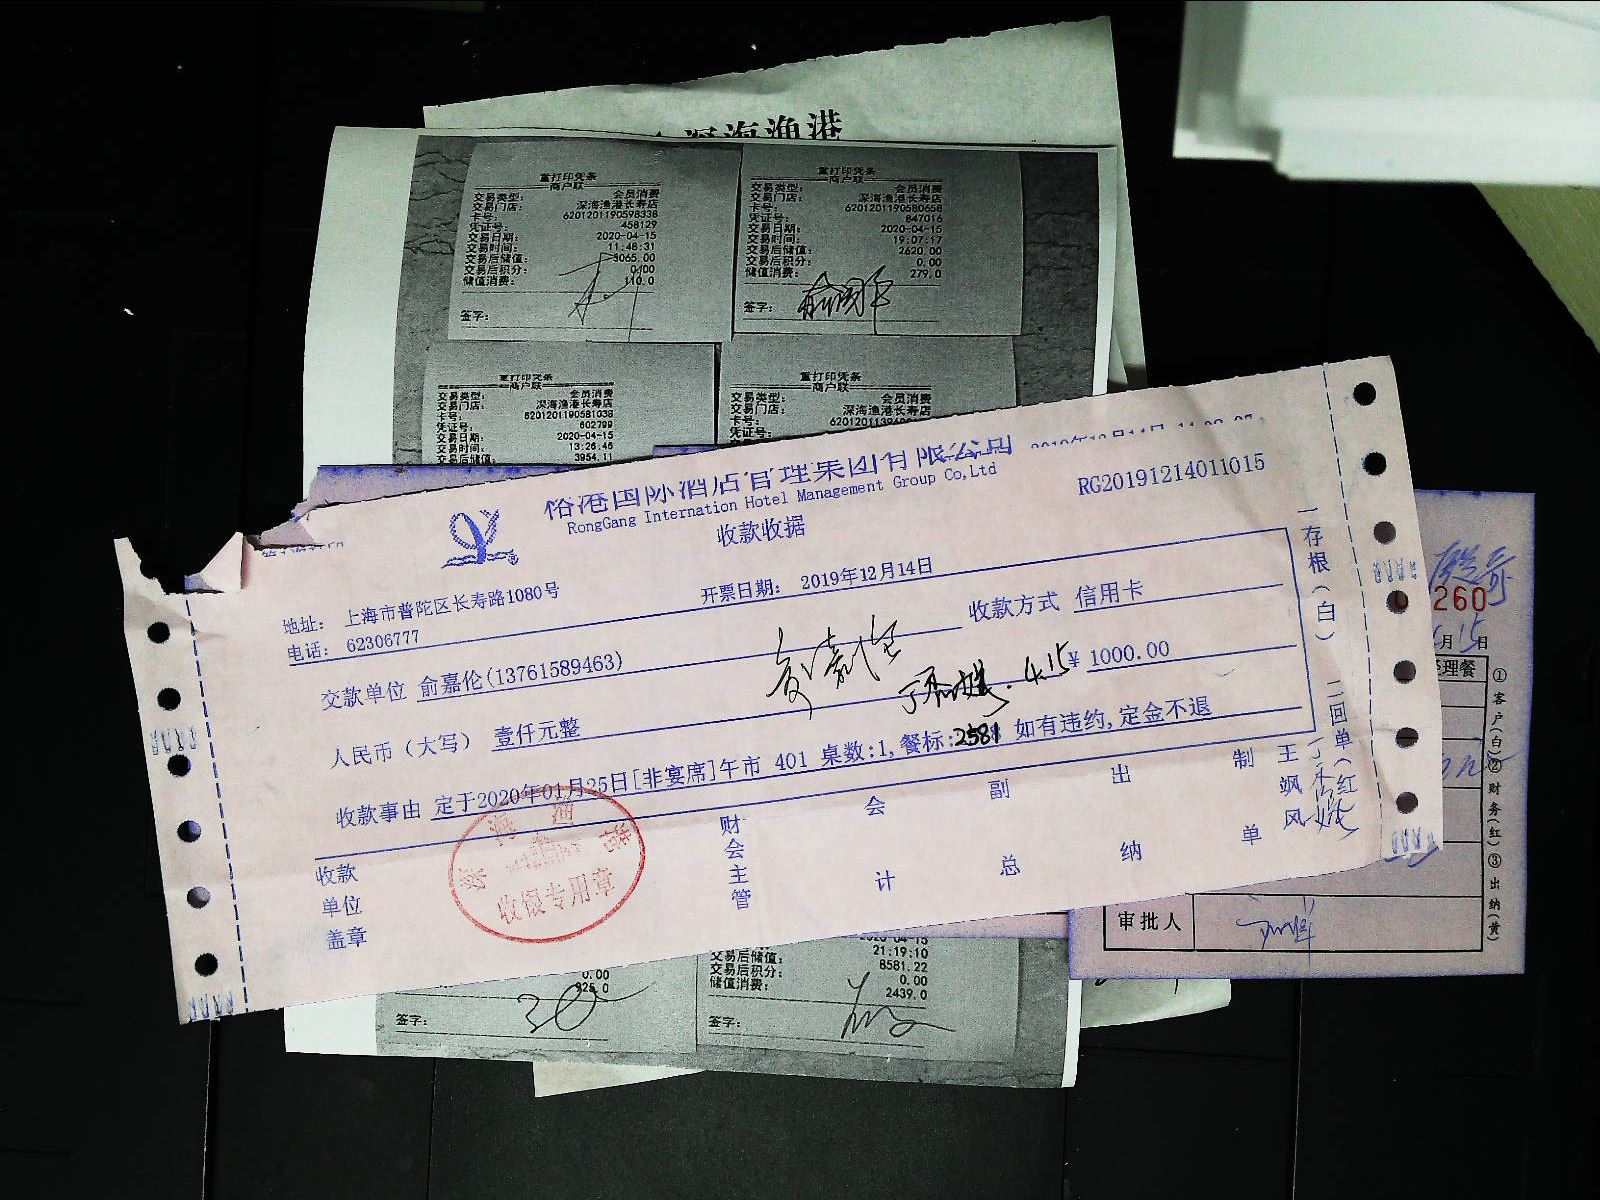 深海渔港
重打印凭条
商户联
交易类型： 会员消费
交易门店： 深海渔港长寿店
卡号： 6201201190598338
凭证号： 458129
交易日期： 2020-04-15
交易时间： 11:48:31
交易后储值： 3065.00
交易后积分： 0.00
储值消费： 110.0
签字：
重打印凭条
商户联
交易类型： 会员消费
交易门店： 深海渔港长寿店
卡号： 6201201190580658
凭证号： 847016
交易日期： 2020-04-15
交易时间： 19:07:17
交易后储值： 2620.00
交易后积分： 0.00
储值消费： 279.0
签字：
重打印凭条
商户联
交易类型： 会员消费
交易门店： 深海渔港长寿店
卡号： 6201201190581038
凭证号： 602799
交易日期： 2020-04-15
交易时间： 13:26:46
交易后储值： 3954.11
重打印凭条
商户联
交易类型： 会员消费
交易门店： 深海渔港长寿店
卡号：
凭证号：
2019年12月14日
RG20191214011015
国际酒店管理集团有限公司
RongGang Internation Hotel Management Group Co,Ltd
收款收据
地址： 上海市普陀区长寿路1080号
开票日期： 2019年12月14日
电话： 62306777
收款方式 信用卡
交款单位 俞嘉伦(13761589463)
4.15
人民币（大写） 壹仟元整
¥ 1000.00
收款事由 定于2020年01月25日[非宴席]午市 401 桌数:1,餐标:2581 如有违约,定金不退
收款单位盖章
财会主管
会计
副总
出纳
制单
王飒风
一存根(白) 二回单(红)
收银专用章
260
月15日
理餐
①客户(白)②财务(红)③出纳(黄)
审批人
0.00
925.0
签字：
2020-04-15
21:19:10
交易后储值： 8581.22
交易后积分： 0.00
储值消费： 2439.0
签字：